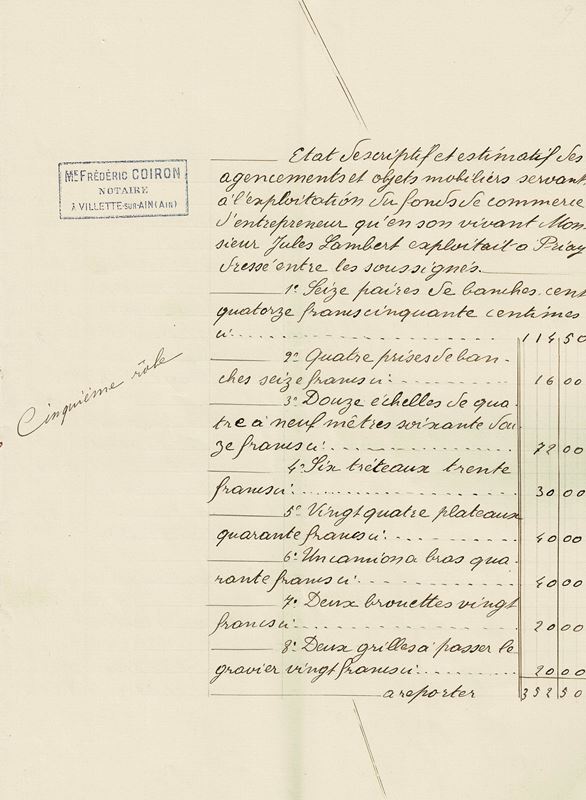 9
Etat descriptif et estimatif des
agencements et objets mobiliers servant
à l'exploitation du fonds de commerce
d'entrepreneur qu'en son vivant Mon-
sieur Jules Lambert exploitait a Priay
dressé entre les soussignés.
Me FRÉDÉRIC COIRON
NOTAIRE
À VILLETTE-SUR-AIN (AIN)
1º Seize paires de banches cent
quatorze francs cinquante centimes
ci: 114 50
Cinquième rôle
2º Quatre prises de ban-
ches seize francs ci: 16 00
3º Douze échelles de qua-
tre à neuf mètres soixante dou
ze francs ci: 72 00
4º Six tréteaux trente
francs ci: 30 00
5º Vingt quatre plateaux
quarante francs ci: 40 00
6º Un camion a bras qua-
rante francs ci: 40 00
7º Deux brouettes vingt
francs ci: 20 00
8º Deux grilles à passer le
gravier vingt francs ci: 20 00
a reporter 352 50